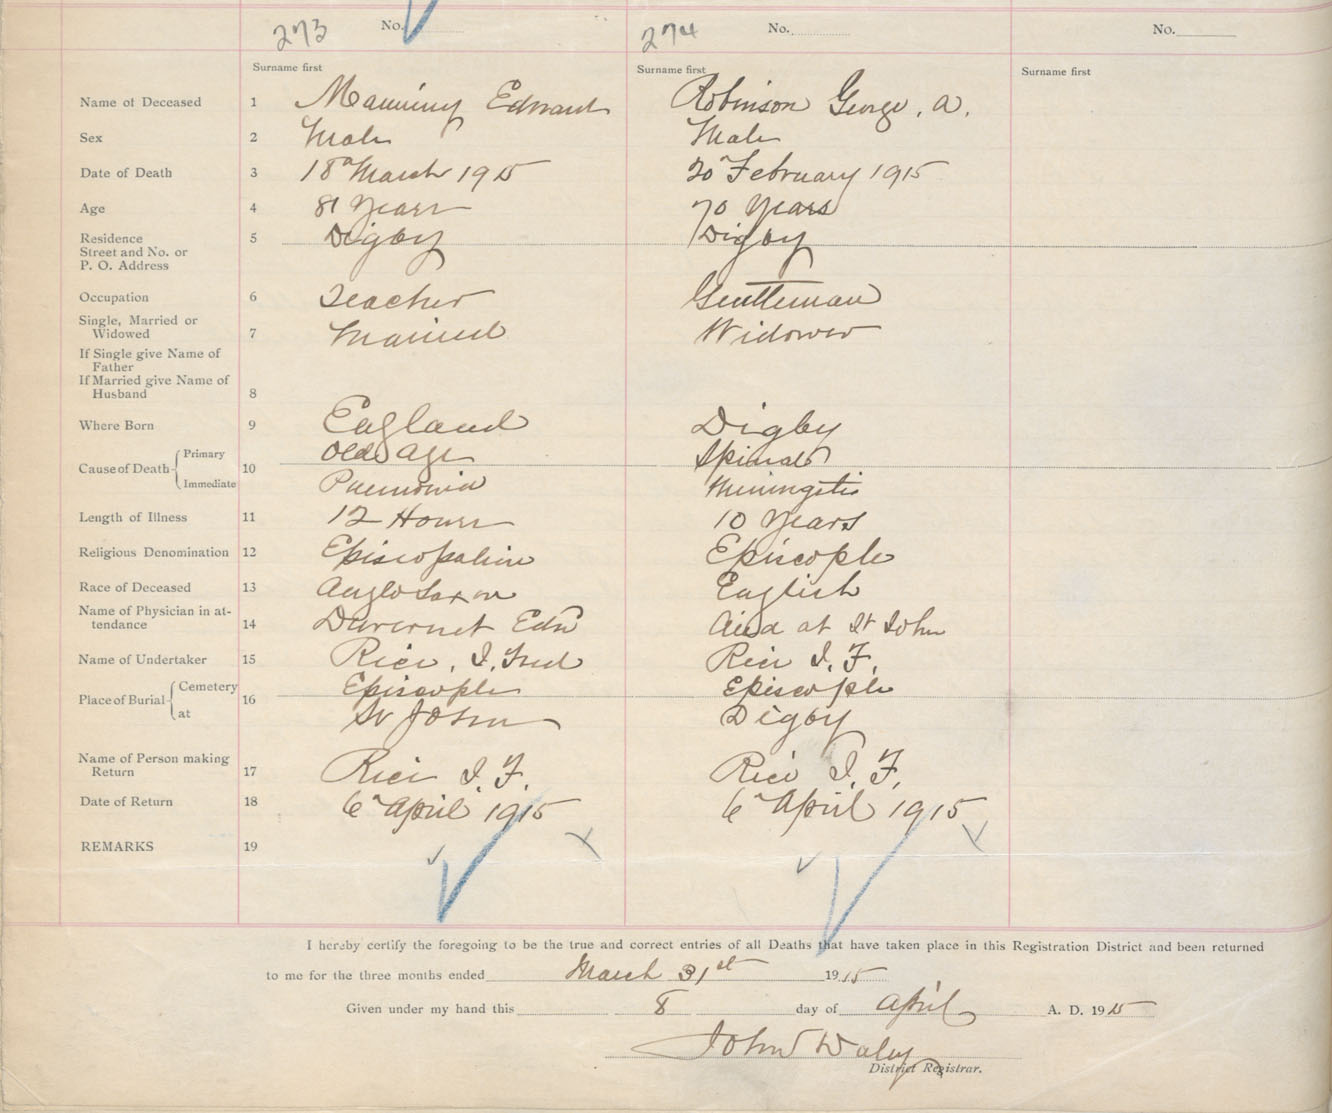 273 No. 274 No. No.
Surname first Surname first Surname first
Name of Deceased 1 Manning Edward Robinson George. A.
Sex 2 Male Male
Date of Death 3 18th March 1915 20th February 1915
Age 4 81 Years 70 Years
Residence 5 Digby Digby
Street and No. or
P. O. Address
Occupation 6 Teacher Gentleman
Single, Married or
Widowed 7 Married Widower
If Single give Name of
Father
If Married give Name of
Husband 8
Where Born 9 England Digby
Cause of Death Primary 10 Old Age Spinal
Immediate Pnemonia Miningetis
Length of Illness 11 12 Hours 10 Years
Religious Denomination 12 Episcopalian Episcople
Race of Deceased 13 Anglo Saxon English
Name of Physician in at-
tendance 14 Duvernet Edn at St John
Name of Undertaker 15 Rice, I. Fred Rice I. F.
Place of Burial Cemetery 16 Episcople Episcople
at St John Digby
Name of Person making
Return 17 Rice I. F. Rice I. F.
Date of Return 18 6th April 1915 6th April 1915
REMARKS 19
I hereby certify the foregoing to be the true and correct entries of all Deaths that have taken place in this Registration District and been returned
to me for the three months ended March 31st 1915
Given under my hand this 8 day of April A. D. 1915
John Daley
District Registrar.